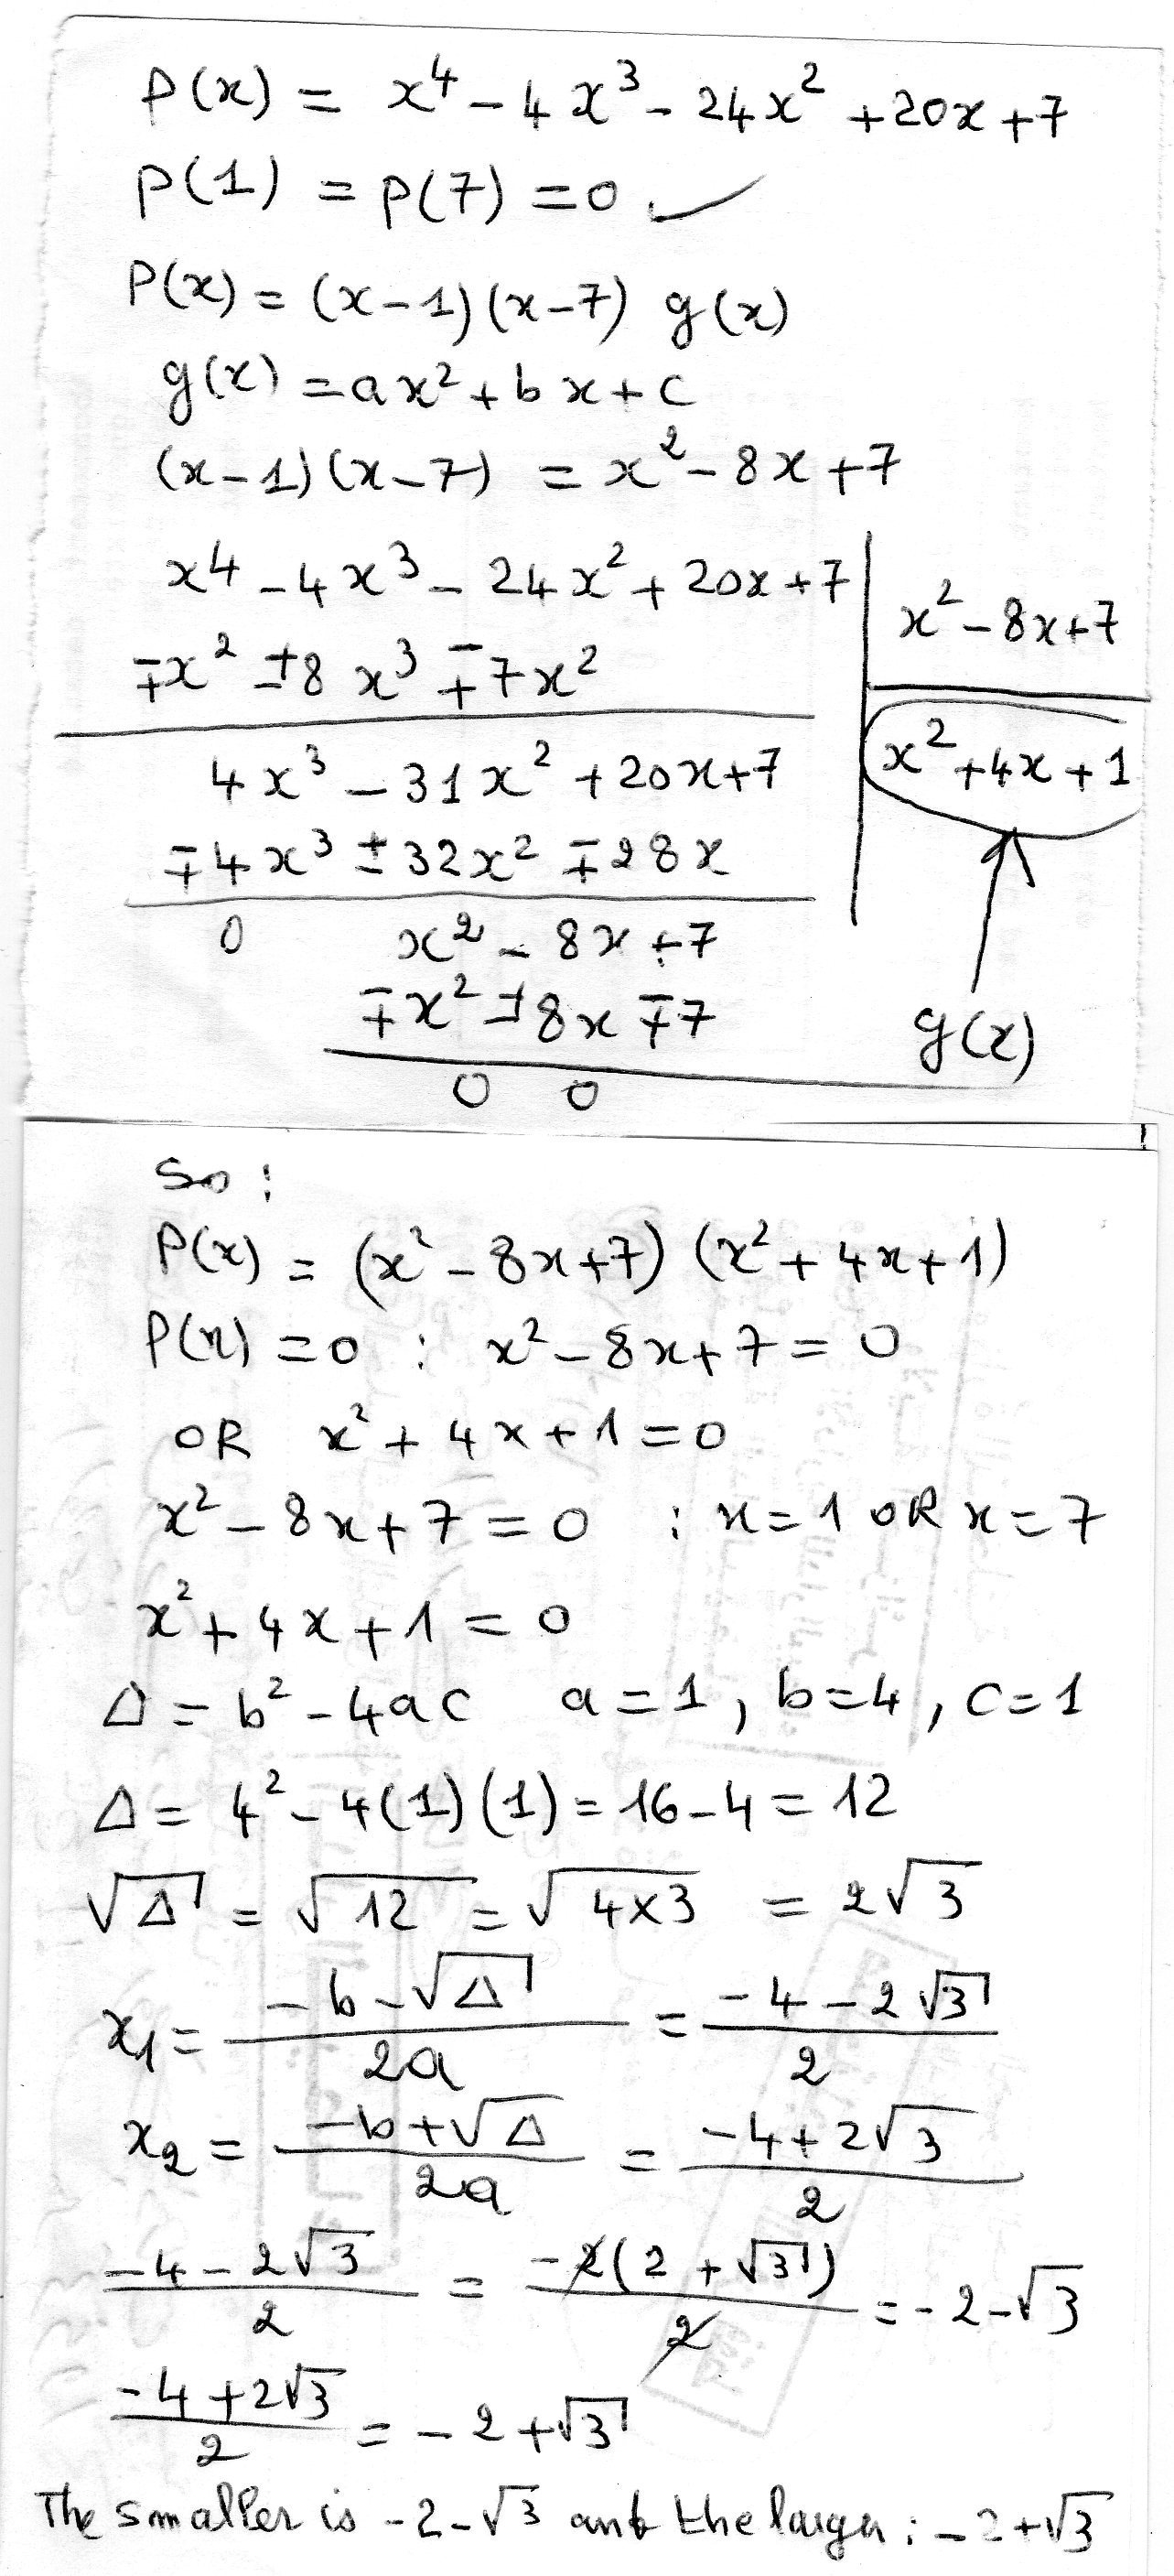 P(x) = x⁴ - 4x³ - 24x² + 20x + 7
P(1) = P(7) = 0 ✓
P(x) = (x-1)(x-7) g(x)
g(x) = ax² + bx + c
(x-1)(x-7) = x² - 8x + 7
x⁴ - 4x³ - 24x² + 20x + 7
x² - 8x + 7
∓x² ±8x³ ∓7x²
x² + 4x + 1
4x³ - 31x² + 20x + 7
∓4x³ ±32x² ∓28x
0 x² - 8x + 7
∓x² ±8x ∓7
g(x)
0 0
So :
P(x) = (x² - 8x + 7) (x² + 4x + 1)
P(x) = 0 : x² - 8x + 7 = 0
OR x² + 4x + 1 = 0
x² - 8x + 7 = 0 : x = 1 OR x = 7
x² + 4x + 1 = 0
Δ = b² - 4ac a = 1, b = 4, c = 1
Δ = 4² - 4(1)(1) = 16 - 4 = 12
√Δ = √12 = √4×3 = 2√3
x₁ = (-b - √Δ)/2a = (-4 - 2√3)/2
x₂ = (-b + √Δ)/2a = (-4 + 2√3)/2
(-4 - 2√3)/2 = -2(2 + √3)/2 = -2 - √3
(-4 + 2√3)/2 = -2 + √3
The smaller is -2-√3 and the larger : -2+√3